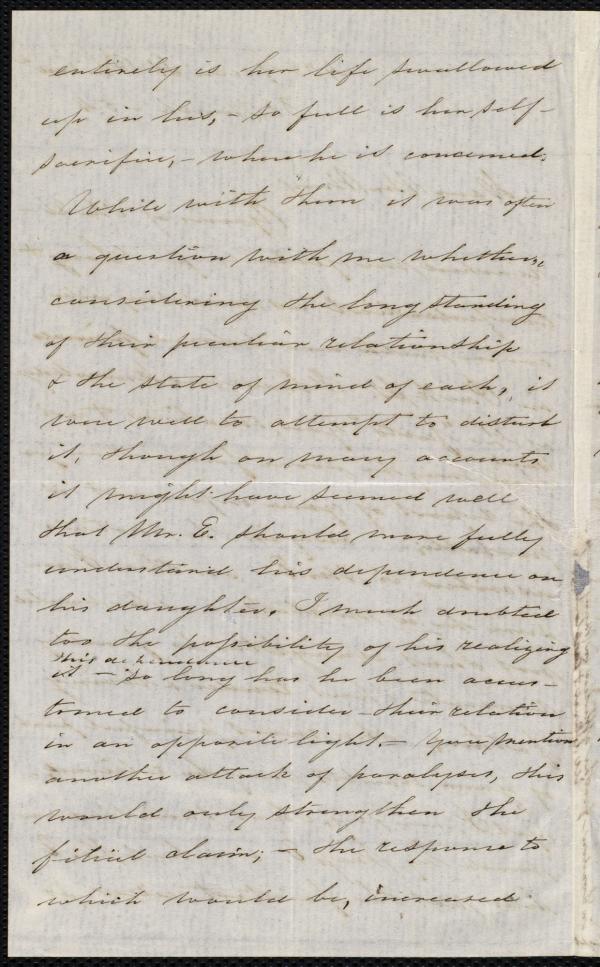 entirely is her life swallowed
up in his, - so full is her self-
sacrifice, - where he is concerned.
While with them it was often
a question with me whether,
considering the long standing
of their peculiar relationship
& the state of mind of each, it
were well to attempt to disturb
it, though on many accounts
it might have seemed well
that Mr. E. should more fully
understand his dependence on
his daughter. I much doubted
too the possibility of his realizing
this dependence
it - so long has he been accus-
tomed to consider their relation
in an opposite light. - You mention
another attack of paralysis, this
would only strengthen the
filial claim; - the response to
which would be, increased